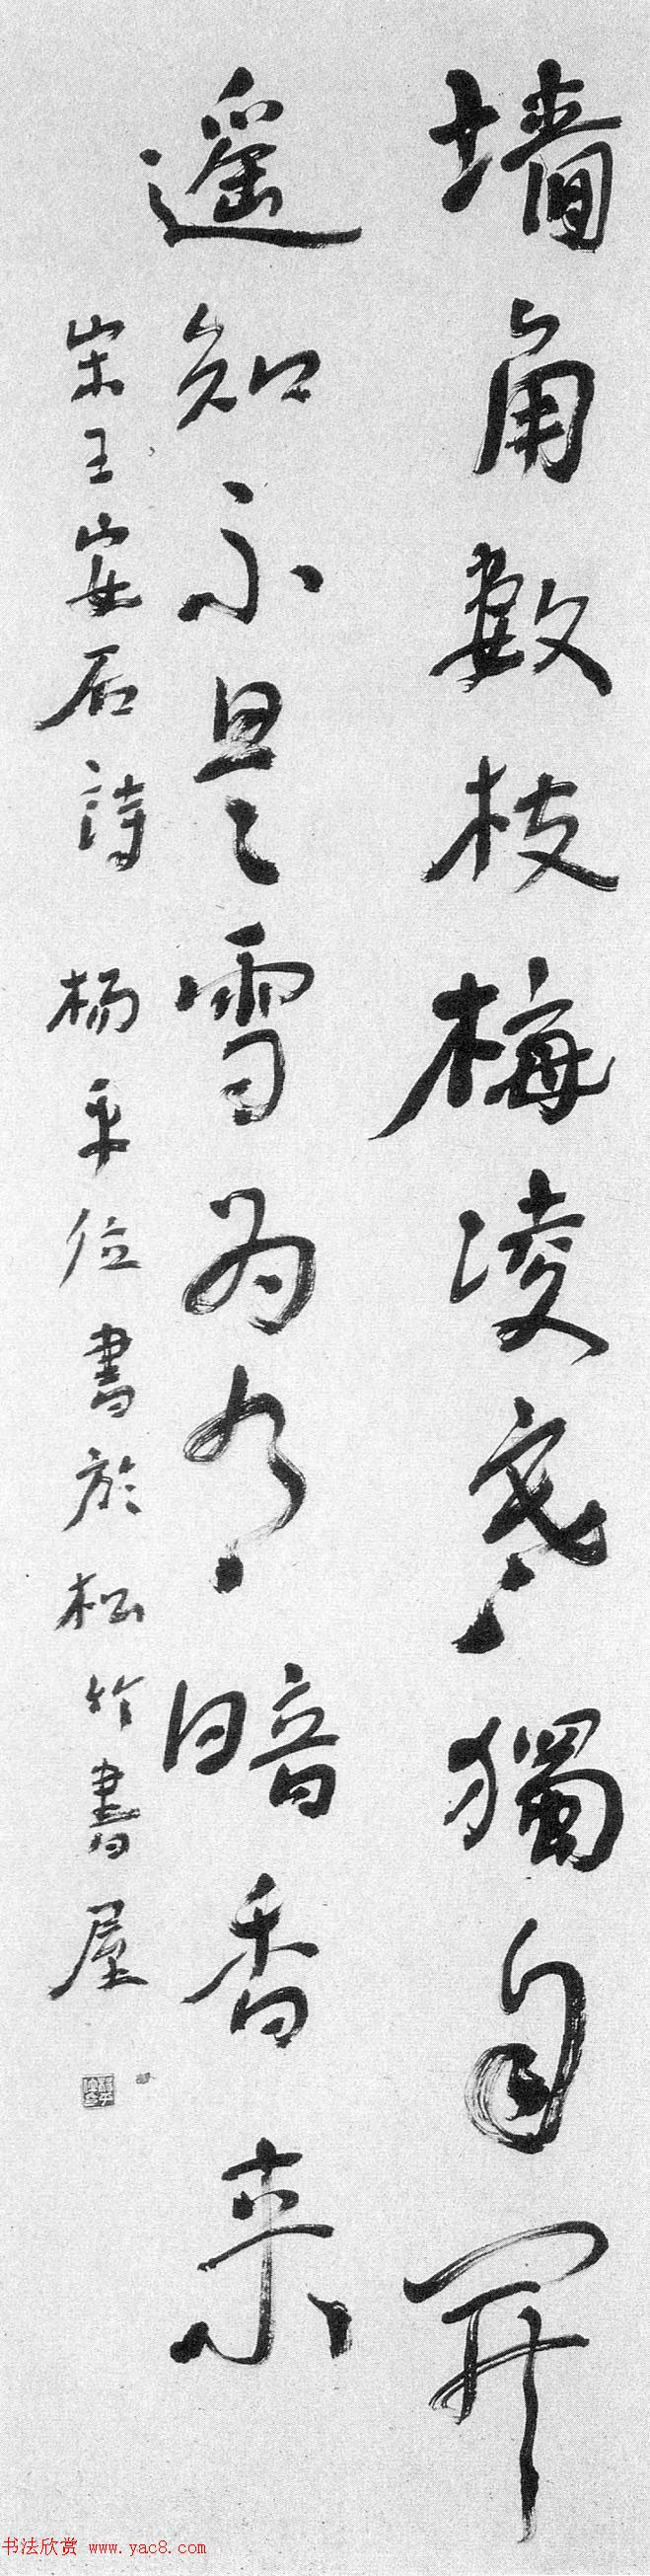 墙角數枝梅凌寒獨自開
遥知不是雪為有暗香来
宋王安石詩 杨平位書於松竹書屋
书法欣赏 www.yac8.com